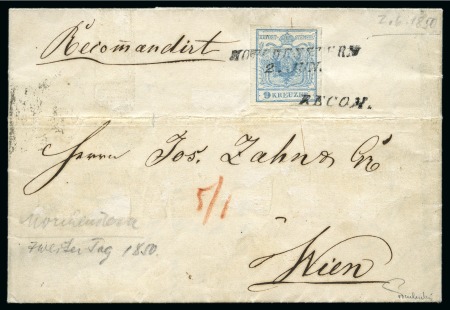 2.6.1850
Recomandirt
2. JUN.
9 KREUZER
RECOM.
Herrn Jos. Zahn &
5/1
zweiter Tag 1850.
Wien